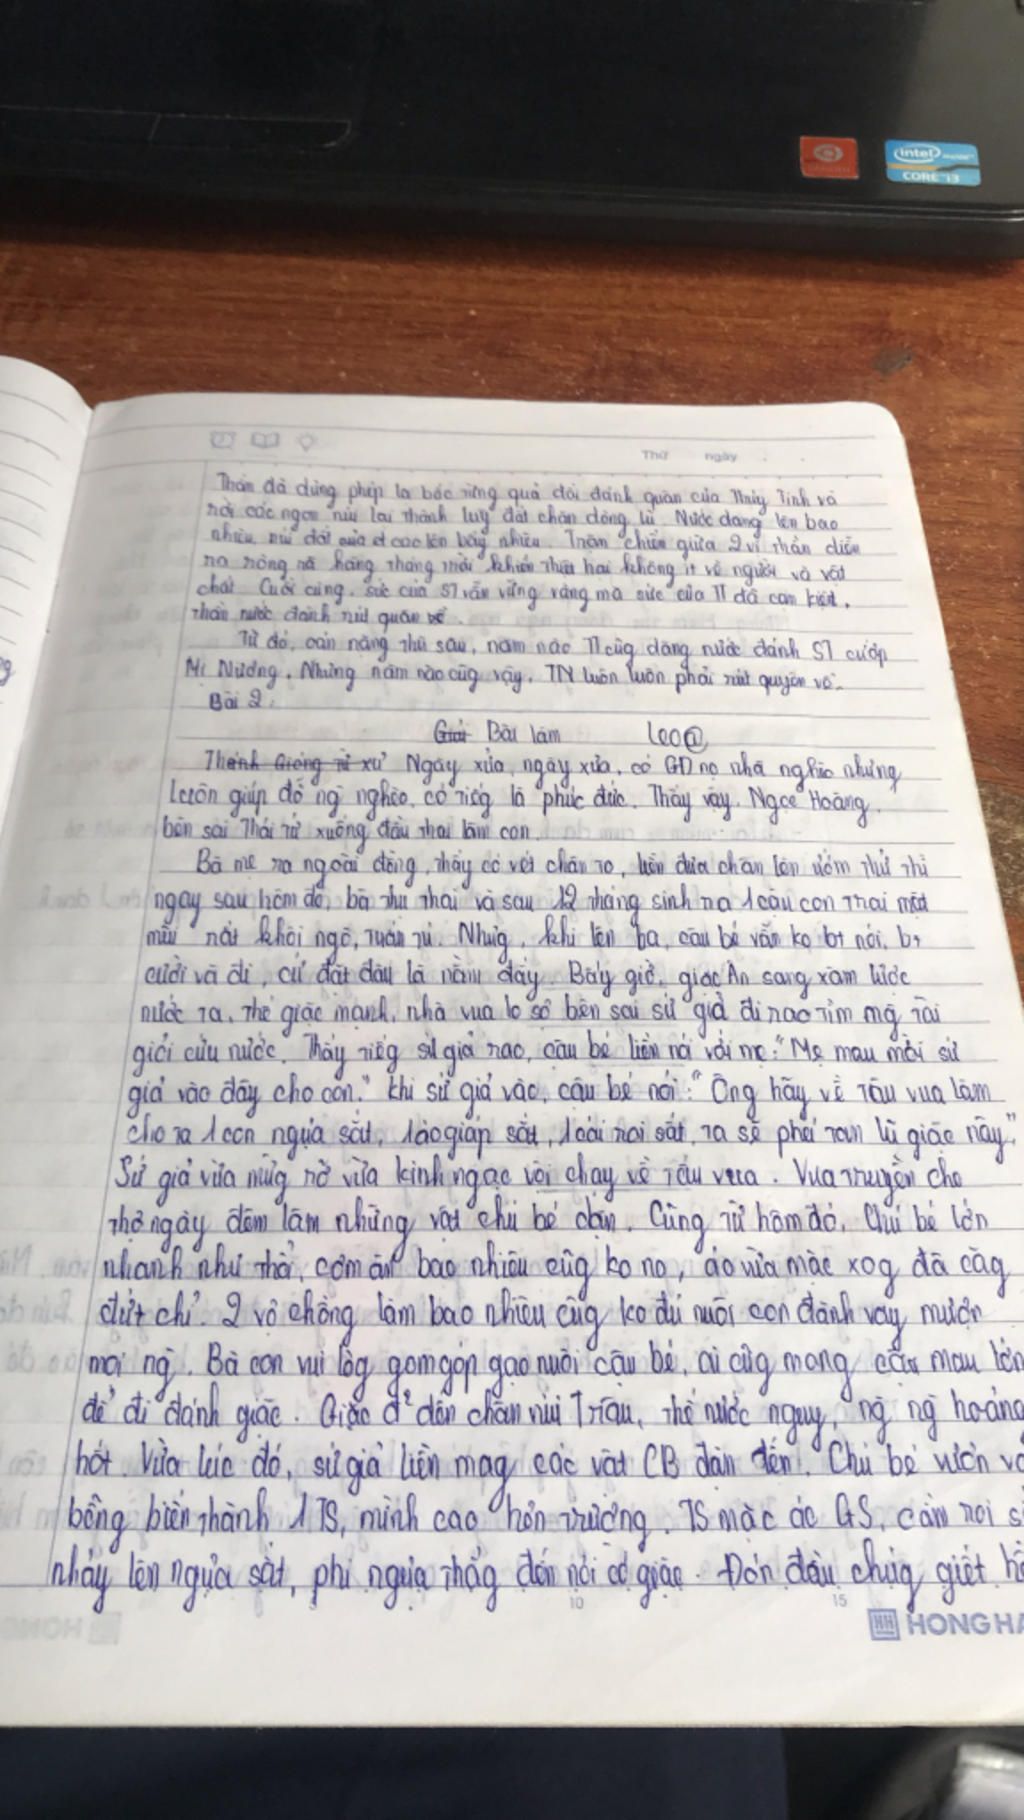 intel inside
CORE i3
Thứ ngày
Thần đã dùng phép lạ bốc từng quả đồi đánh quân của Thủy Tinh và
rời các ngọn núi lại thành luỹ đất chắn dòng lũ. Nước dâng lên bao
nhiêu, núi đất cao lên bấy nhiêu. Trận chiến giữa 2 vị thần diễn
ra ròng rã hàng tháng trời khiến thiệt hại không ít về người và vật
chất. Cuối cùng, sức của ST vẫn vững vàng mà sức của TT đã cạn kiệt,
thần nước đành rút quân về.
Từ đó, oán nặng thù sâu, năm nào TT cũg dâng nước đánh ST cướp
Mị Nương. Nhưng năm nào cũg vậy, TN luôn luôn phải rút quyên về.
Bài 2:
Giải Bài làm Leo@
Thánh Gióng Từ xử Ngày xửa, ngày xưa, có GĐ nọ nhà nghèo nhưng
luôn giúp đỡ ng nghèo, có tiếg là phúc đức. Thấy vậy, Ngọc Hoàng
bèn sai Thái tử xuống đầu thai làm con.
Bà mẹ ra ngoài đồng, thấy có vết chân to, liền đưa chân lên ướm thử thì
ngay sau hôm đó, bà thụ thai và sau 12 tháng sinh ra 1 cậu con trai mặt
mũi rất khôi ngô, tuấn tú. Nhưg, khi lên ba, cậu bé vẫn ko bt nói, bt
cười và đi, cứ đặt đâu là nằm đấy. Bấy giờ, giặc Ân sang xâm lược
nước ta, thế giặc mạnh, nhà vua lo sợ bèn sai sứ giả đi rao tìm ng tài
giỏi cứu nước. Thấy tiếg sứ giả rao, cậu bé liền nói với mẹ: "Mẹ mau mời sứ
giả vào đây cho con." Khi sứ giả vào, cậu bé nói: "Ông hãy về tâu vua làm
cho ta 1 con ngựa sắt, 1 áo giáp sắt, 1 cái roi sắt, ta sẽ phá tan lũ giặc này".
Sứ giả vừa mừg rỡ vừa kinh ngạc vội chạy về tâu vua. Vua truyền cho
thợ ngày đêm làm những vật chú bé dặn. Cũng từ hôm đó, chú bé lớn
nhanh như thổi, cơm ăn bao nhiêu cũg ko no, áo vừa mặc xog đã căg
đứt chỉ. 2 vợ chồng làm bao nhiêu cũg ko đủ nuôi con đành vay mượn
mọi ng. Bà con vui lòg gom góp gạo nuôi cậu bé, ai cũg mong cậu mau lớn
để đi đánh giặc. Giặc đ² đến chân núi Trâu, thế nước nguy, ng ng hoảng
hốt. Vừa lúc đó, sứ giả liền mag các vật CB dặn đến. Chú bé vươn va
bỗng biến thành 1 TS, mình cao hơn trượng. TS mặc áo GS, cầm roi s
nhảy lên ngựa sắt, phi ngựa thẳg đến nơi có giặc. Đón đầu chúg giết hế
10 15
HONG HA